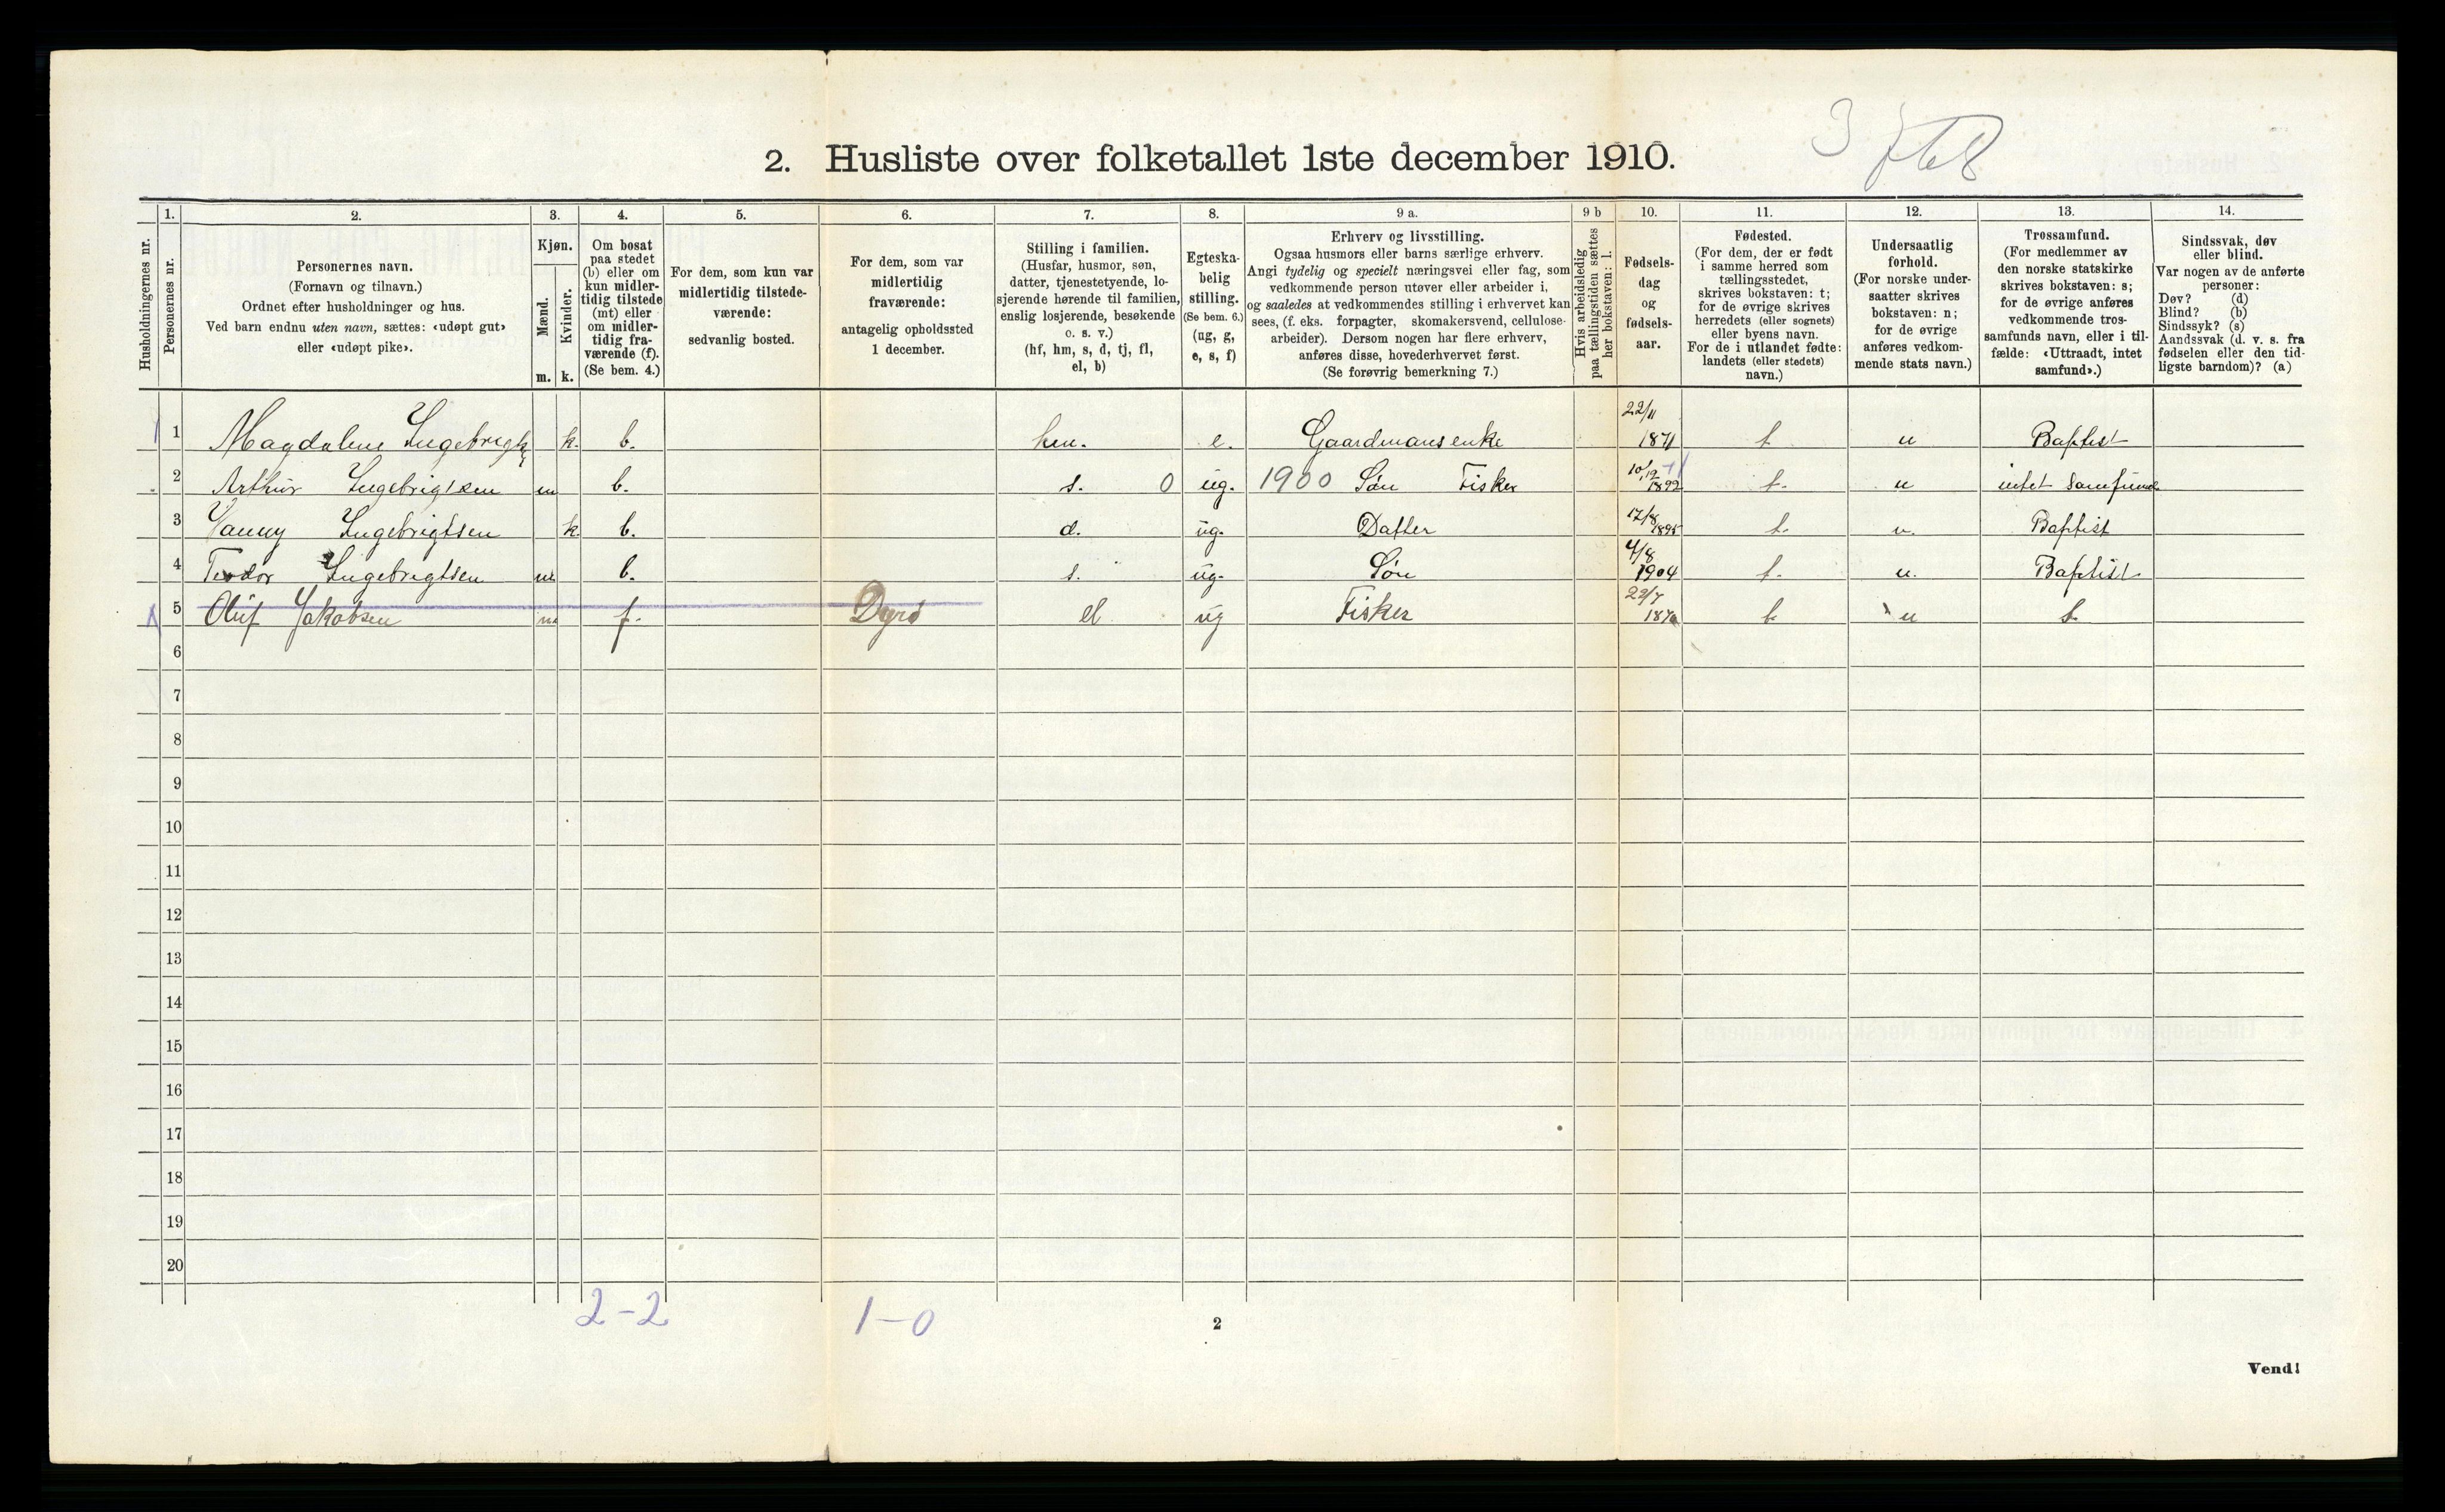 3
2. Husliste over folketallet 1ste december 1910.
Husholdningernes nr.
1. Personernes nr.
2. Personernes navn.
(Fornavn og tilnavn.)
Ordnet efter husholdninger og hus.
Ved barn endnu uten navn, sættes: «udøpt gut»
eller «udøpt pike».
3. Kjøn.
Mænd. m.
Kvinder. k.
4. Om bosat
paa stedet
(b) eller om
kun midler-
tidig tilstede
(mt) eller
om midler-
tidig fra-
værende (f).
(Se bem. 4.)
5. For dem, som kun var
midlertidig tilstede-
værende:
sedvanlig bosted.
6. For dem, som var
midlertidig
fraværende:
antagelig opholdssted
1 december.
7. Stilling i familien.
(Husfar, husmor, søn,
datter, tjenestetyende, lo-
sjerende hørende til familien,
enslig losjerende, besøkende
o. s. v.)
(hf, hm, s, d, tj, fl,
el, b)
8. Egteska-
belig
stilling.
(Se bem. 6.)
(ug, g,
e, s, f)
9 a. Erhverv og livsstilling.
Ogsaa husmors eller barns særlige erhverv.
Angi tydelig og specielt næringsvei eller fag, som
vedkommende person utøver eller arbeider i,
og saaledes at vedkommendes stilling i erhvervet kan
sees, (f. eks. forpagter, skomakersvend, cellulose-
arbeider). Dersom nogen har flere erhverv,
anføres disse, hovederhvervet først.
(Se forøvrig bemerkning 7.)
9 b Hvis arbeidsledig
paa tællingstiden sættes
her bokstaven: l.
10. Fødsels-
dag
og
fødsels-
aar.
11. Fødested.
(For dem, der er født
i samme herred som
tællingsstedet,
skrives bokstaven: t;
for de øvrige skrives
herredets (eller sognets)
eller byens navn.
For de i utlandet fødte:
landets (eller stedets)
navn.)
12. Undersaatlig
forhold.
(For norske under-
saatter skrives
bokstaven: n;
for de øvrige
anføres vedkom-
mende stats navn.)
13. Trossamfund.
(For medlemmer av
den norske statskirke
skrives bokstaven: s;
for de øvrige anføres
vedkommende tros-
samfunds navn, eller i til-
fælde: «Uttraadt, intet
samfund».)
14. Sindssvak, døv
eller blind.
Var nogen av de anførte
personer:
Døv? (d)
Blind? (b)
Sindssyk? (s)
Aandssvak (d. v. s. fra
fødselen eller den tid-
ligste barndom)? (a)
1 Magdalene k. b. hm. e. Gaardmansenke 22/11 1871 t. n Baptist
2 Arthur Ingebrigtsen m b. s. 0 ug. 1900 Søn Fisker 10/12 1892 t. n intet samfund
3 Ingebrigtsen k. b. d. ug. Datter 17/8 1895 t. n. Baptist
4 Teodor Ingebrigtsen m b. s. ug. Søn 4/8 1904 t. n. Baptist
5 Oluf Jakobsen m f. Dyrø el ug Fisker 22/7 t n s.
6
7
8
9
10
11
12
13
14
15
16
17
18
19
20
2-2 1-0
2
Vend!